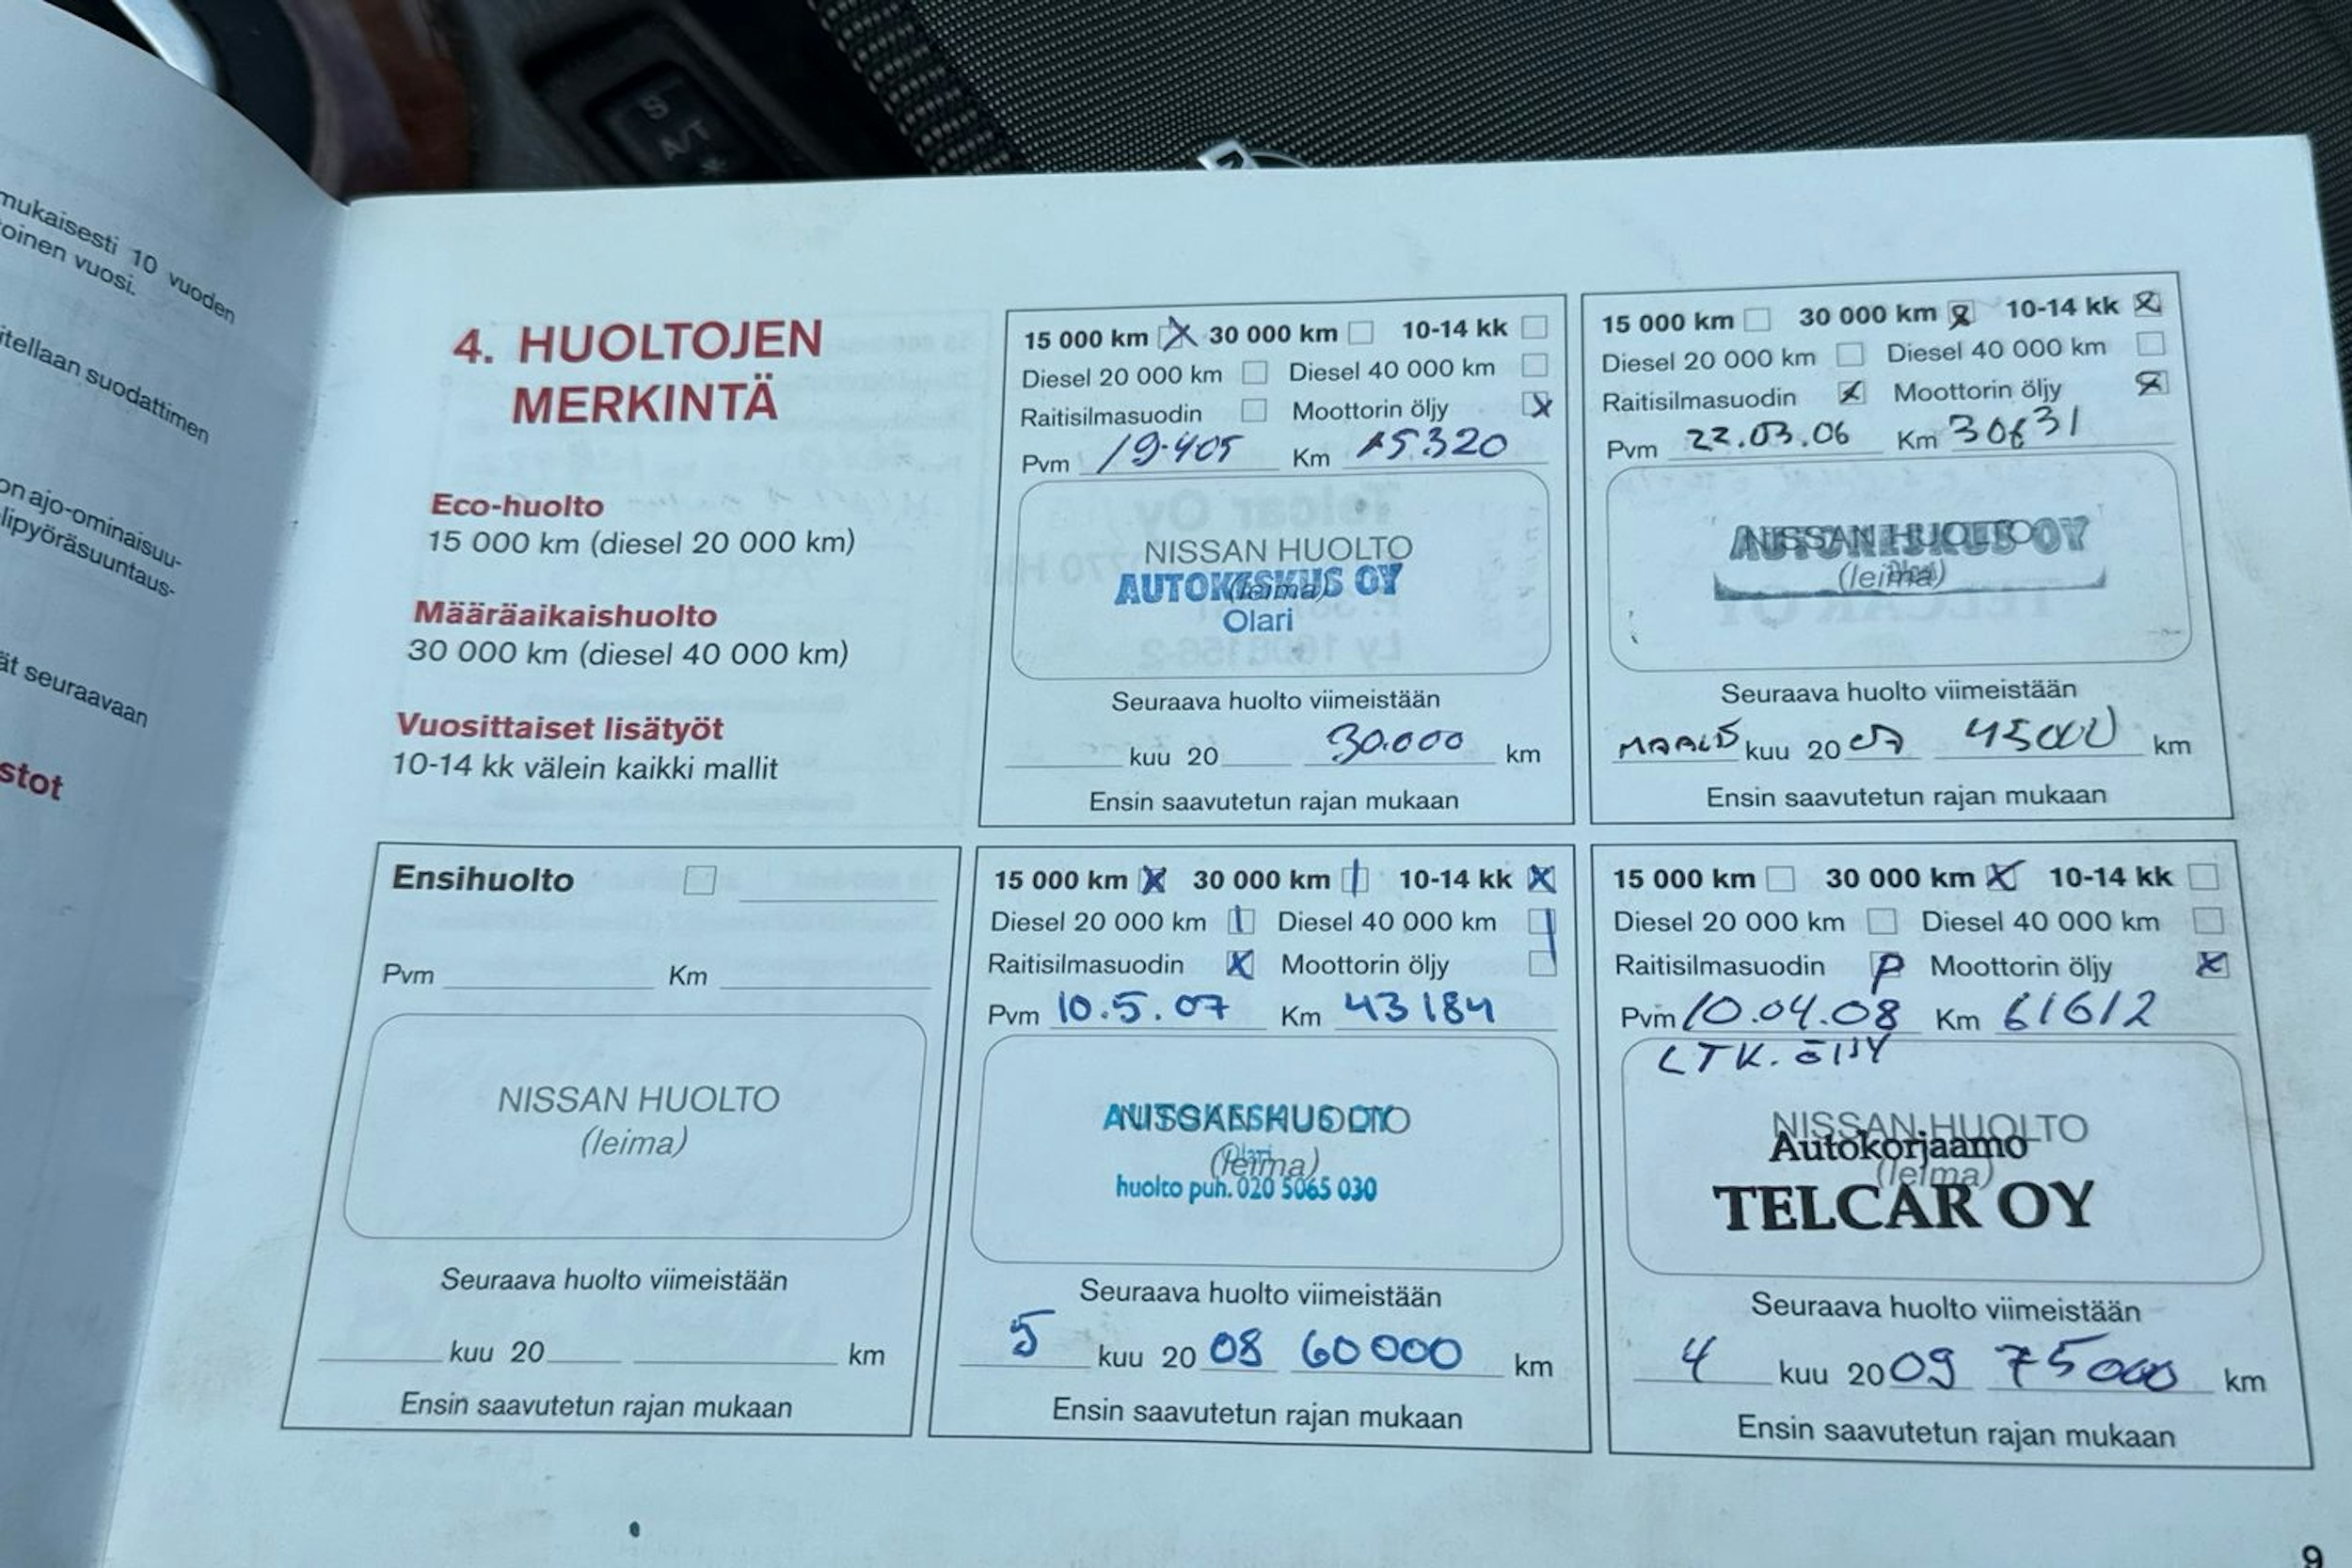 mukaisesti 10 vuoden
oinen vuosi.
itellaan suodattimen
on ajo-ominaisuu-
lipyöräsuuntaus-
ät seuraavaan
stot
S
A/T
4. HUOLTOJEN
MERKINTÄ
Eco-huolto
15 000 km (diesel 20 000 km)
Määräaikaishuolto
30 000 km (diesel 40 000 km)
Vuosittaiset lisätyöt
10-14 kk välein kaikki mallit
15 000 km 30 000 km 10-14 kk
Diesel 20 000 km Diesel 40 000 km
Raitisilmasuodin Moottorin öljy
Pvm 19.405 Km 15.320
NISSAN HUOLTO
AUTOKESKUS OY
(leima)
Olari
Seuraava huolto viimeistään
kuu 20 30.000 km
Ensin saavutetun rajan mukaan
15 000 km 30 000 km 10-14 kk
Diesel 20 000 km Diesel 40 000 km
Raitisilmasuodin Moottorin öljy
Pvm 22.03.06 Km 30631
NISSAN HUOLTO
AUTOKESKUS OY
(leima)
Seuraava huolto viimeistään
MAALIS kuu 20 07 45000 km
Ensin saavutetun rajan mukaan
Ensihuolto
Pvm Km
NISSAN HUOLTO
(leima)
Seuraava huolto viimeistään
kuu 20 km
Ensin saavutetun rajan mukaan
15 000 km 30 000 km 10-14 kk
Diesel 20 000 km Diesel 40 000 km
Raitisilmasuodin Moottorin öljy
Pvm 10.5.07 Km 43184
NISSAN HUOLTO
AUTOKESKUS OY
Olari
(leima)
huolto puh. 020 5065 030
Seuraava huolto viimeistään
5 kuu 20 08 60000 km
Ensin saavutetun rajan mukaan
15 000 km 30 000 km 10-14 kk
Diesel 20 000 km Diesel 40 000 km
Raitisilmasuodin P Moottorin öljy
Pvm 10.04.08 Km 61612
LTK. öljy
NISSAN HUOLTO
Autokorjaamo
(leima)
TELCAR OY
Seuraava huolto viimeistään
4 kuu 20 09 75000 km
Ensin saavutetun rajan mukaan
9